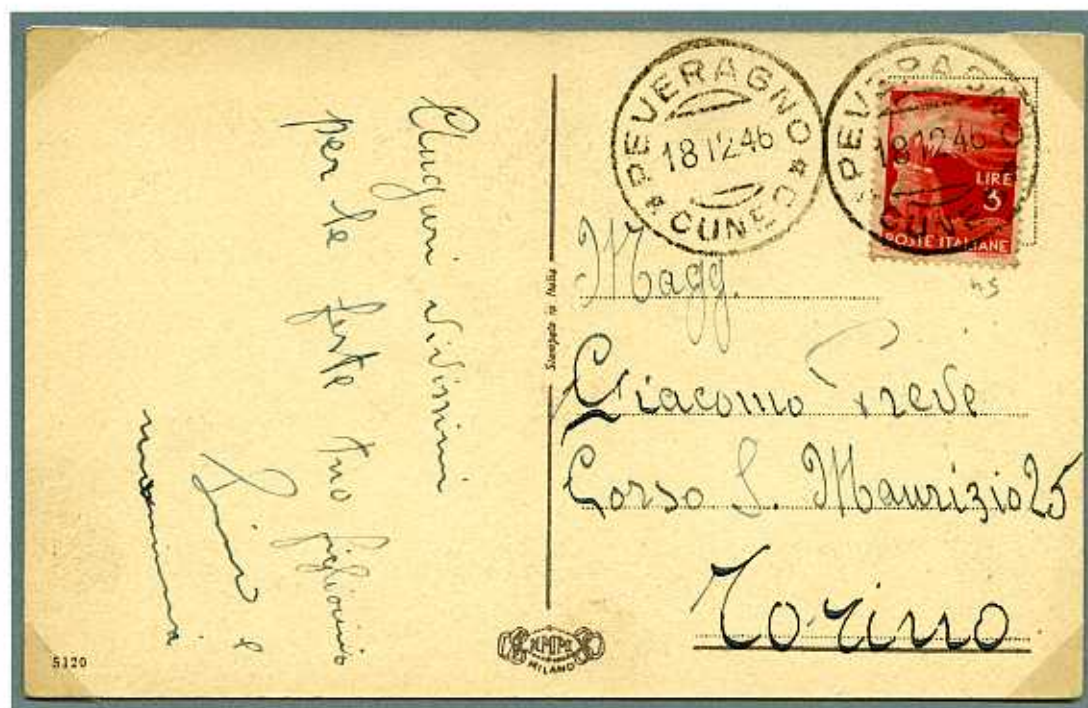 Auguri vivissimi
per le feste tuo figlioccio
Pino e
mammina
5120
Stampata in Italia
MILANO
PEVERAGNO
18 12 46
CUNEO
PEVERAGNO
18 12 46
CUNE
LIRE
3
POSTE ITALIANE
Magg.
Giacomo Preve
Corso S. Maurizio 25
Torino